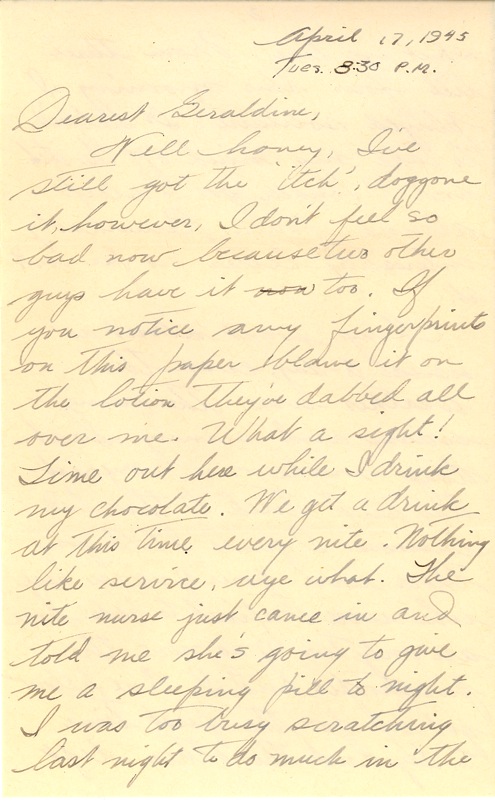 April 17, 1945
Tues. 8:30 P.M.
Dearest Geraldine,
Well honey, I've
still got the 'itch', doggone
it, however, I don't feel so
bad now because two other
guys have it now too. If
you notice any fingerprints
on this paper blame it on
the lotion they've dabbed all
over me. What a sight!
Time out here while I drink
my chocolate. We get a drink
at this time every nite. Nothing
like service, aye what. The
nite nurse just came in and
told me she's going to give
me a sleeping pill to night.
I was too busy scratching
last night to do much in the